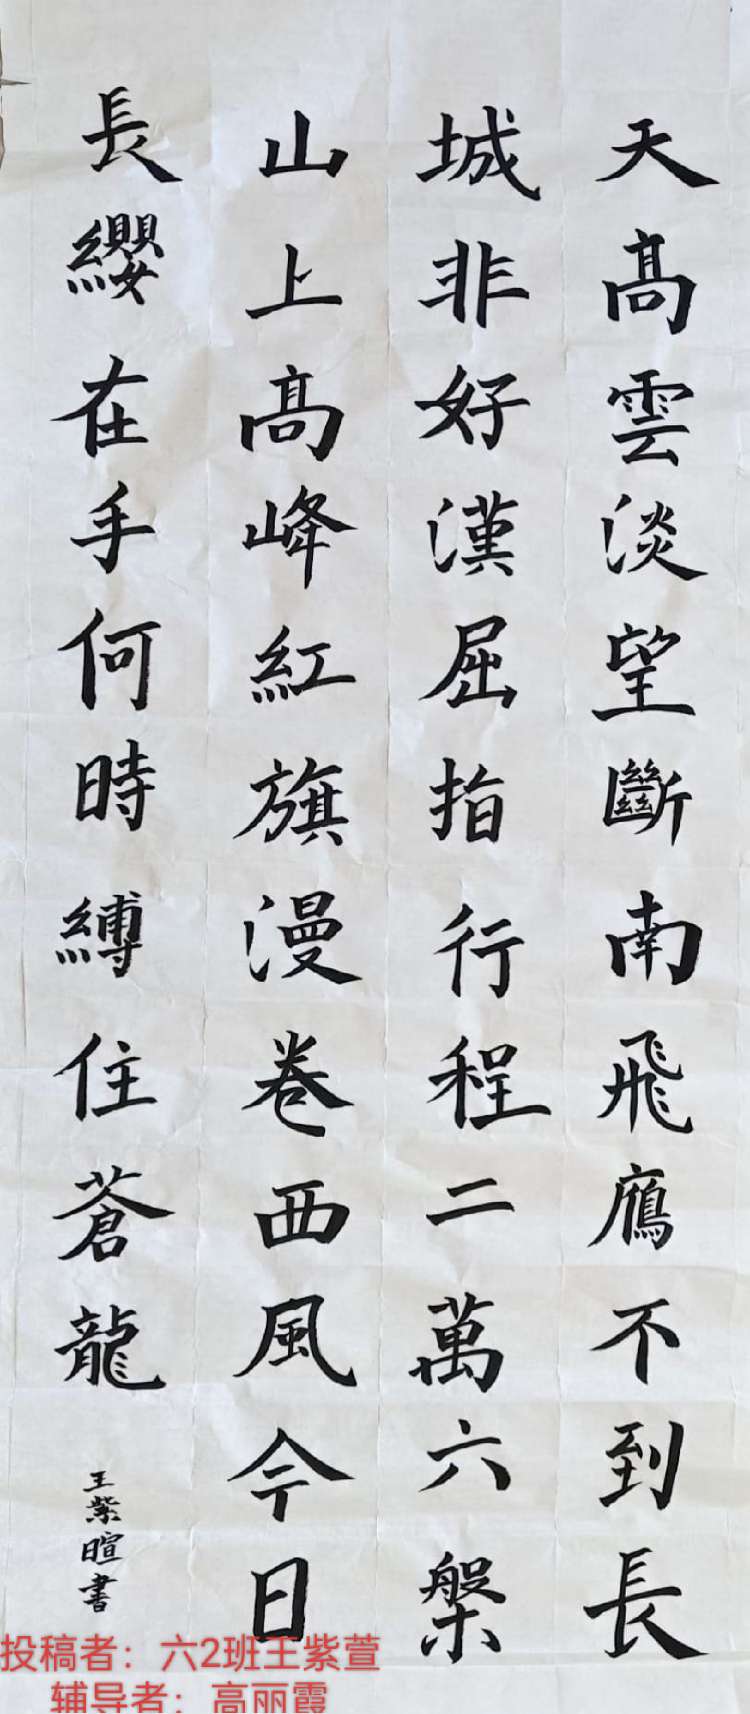 天高雲淡望斷南飛鴈不到長
城非好漢屈指行程二萬六槃
山上高峰紅旗漫卷西風今日
長纓在手何時縛住蒼龍
王紫暄書
投稿者：六2班王紫萱
辅导者：高丽霞